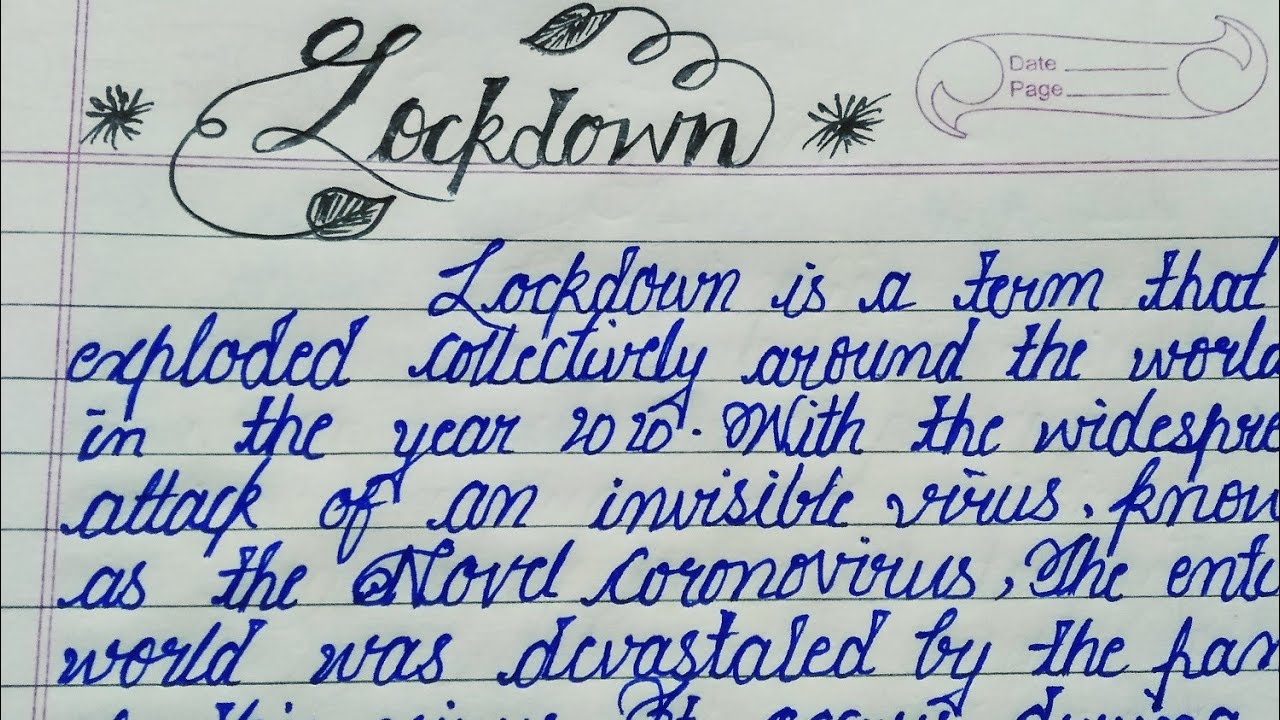 Lockdown
Date
Page
Lockdown is a term that
exploded collectively around the world
in the year 2020. With the widespre
attack of an invisible virus. know
as the Novel Coronovirus, The enti
world was devastated by the pan